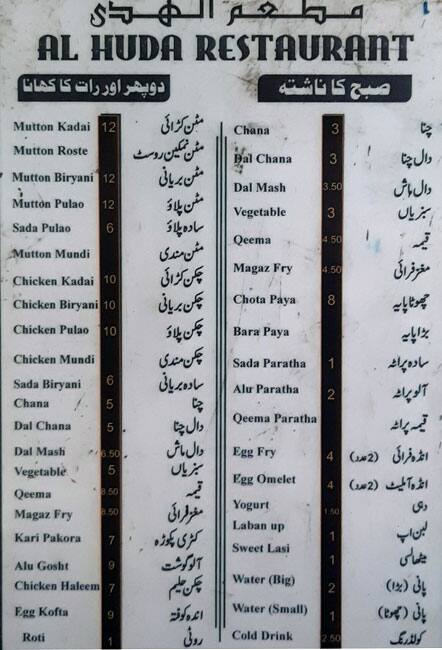 مطعم الهدى
AL HUDA RESTAURANT
دوپہر اور رات کا کھانا
Mutton Kadai 12 مٹن کڑائی
Mutton Roste مٹن نمکین روسٹ
Mutton Biryani 12 مٹن بریانی
Mutton Pulao 12 مٹن پلاؤ
Sada Pulao 6 سادہ پلاؤ
Mutton Mundi مٹن مندی
Chicken Kadai 10 چکن کڑائی
Chicken Biryani 10 چکن بریانی
Chicken Pulao 10 چکن پلاؤ
Chicken Mundi چکن مندی
Sada Biryani 6 سادہ بریانی
Chana 5 چنا
Dal Chana 5 دال چنا
Dal Mash 6.50 دال ماش
Vegetable 5 سبزیاں
Qeema 8.50 قیمہ
Magaz Fry 8.50 مغز فرائی
Kari Pakora 7 کڑی پکوڑہ
Alu Gosht 9 آلو گوشت
Chicken Haleem 7 چکن حلیم
Egg Kofta 9 انڈہ کوفتہ
Roti 1 روٹی
صبح کا ناشتہ
Chana 3 چنا
Dal Chana 3 دال چنا
Dal Mash 3.50 دال ماش
Vegetable 3 سبزیاں
Qeema 4.50 قیمہ
Magaz Fry 4.50 مغز فرائی
Chota Paya 8 چھوٹا پایہ
Bara Paya بڑا پایہ
Sada Paratha 1 سادہ پراٹھہ
Alu Paratha 2 آلو پراٹھہ
Qeema Paratha قیمہ پراٹھہ
Egg Fry 4 انڈہ فرائی (2 عدد)
Egg Omelet 4 انڈہ آملیٹ (2 عدد)
Yogurt 1.50 دہی
Laban up 1 لبن اپ
Sweet Lasi 1 میٹھا لسی
Water (Big) 2 پانی (بڑا)
Water (Small) 1 پانی (چھوٹا)
Cold Drink 2.50 کولڈ رنگ